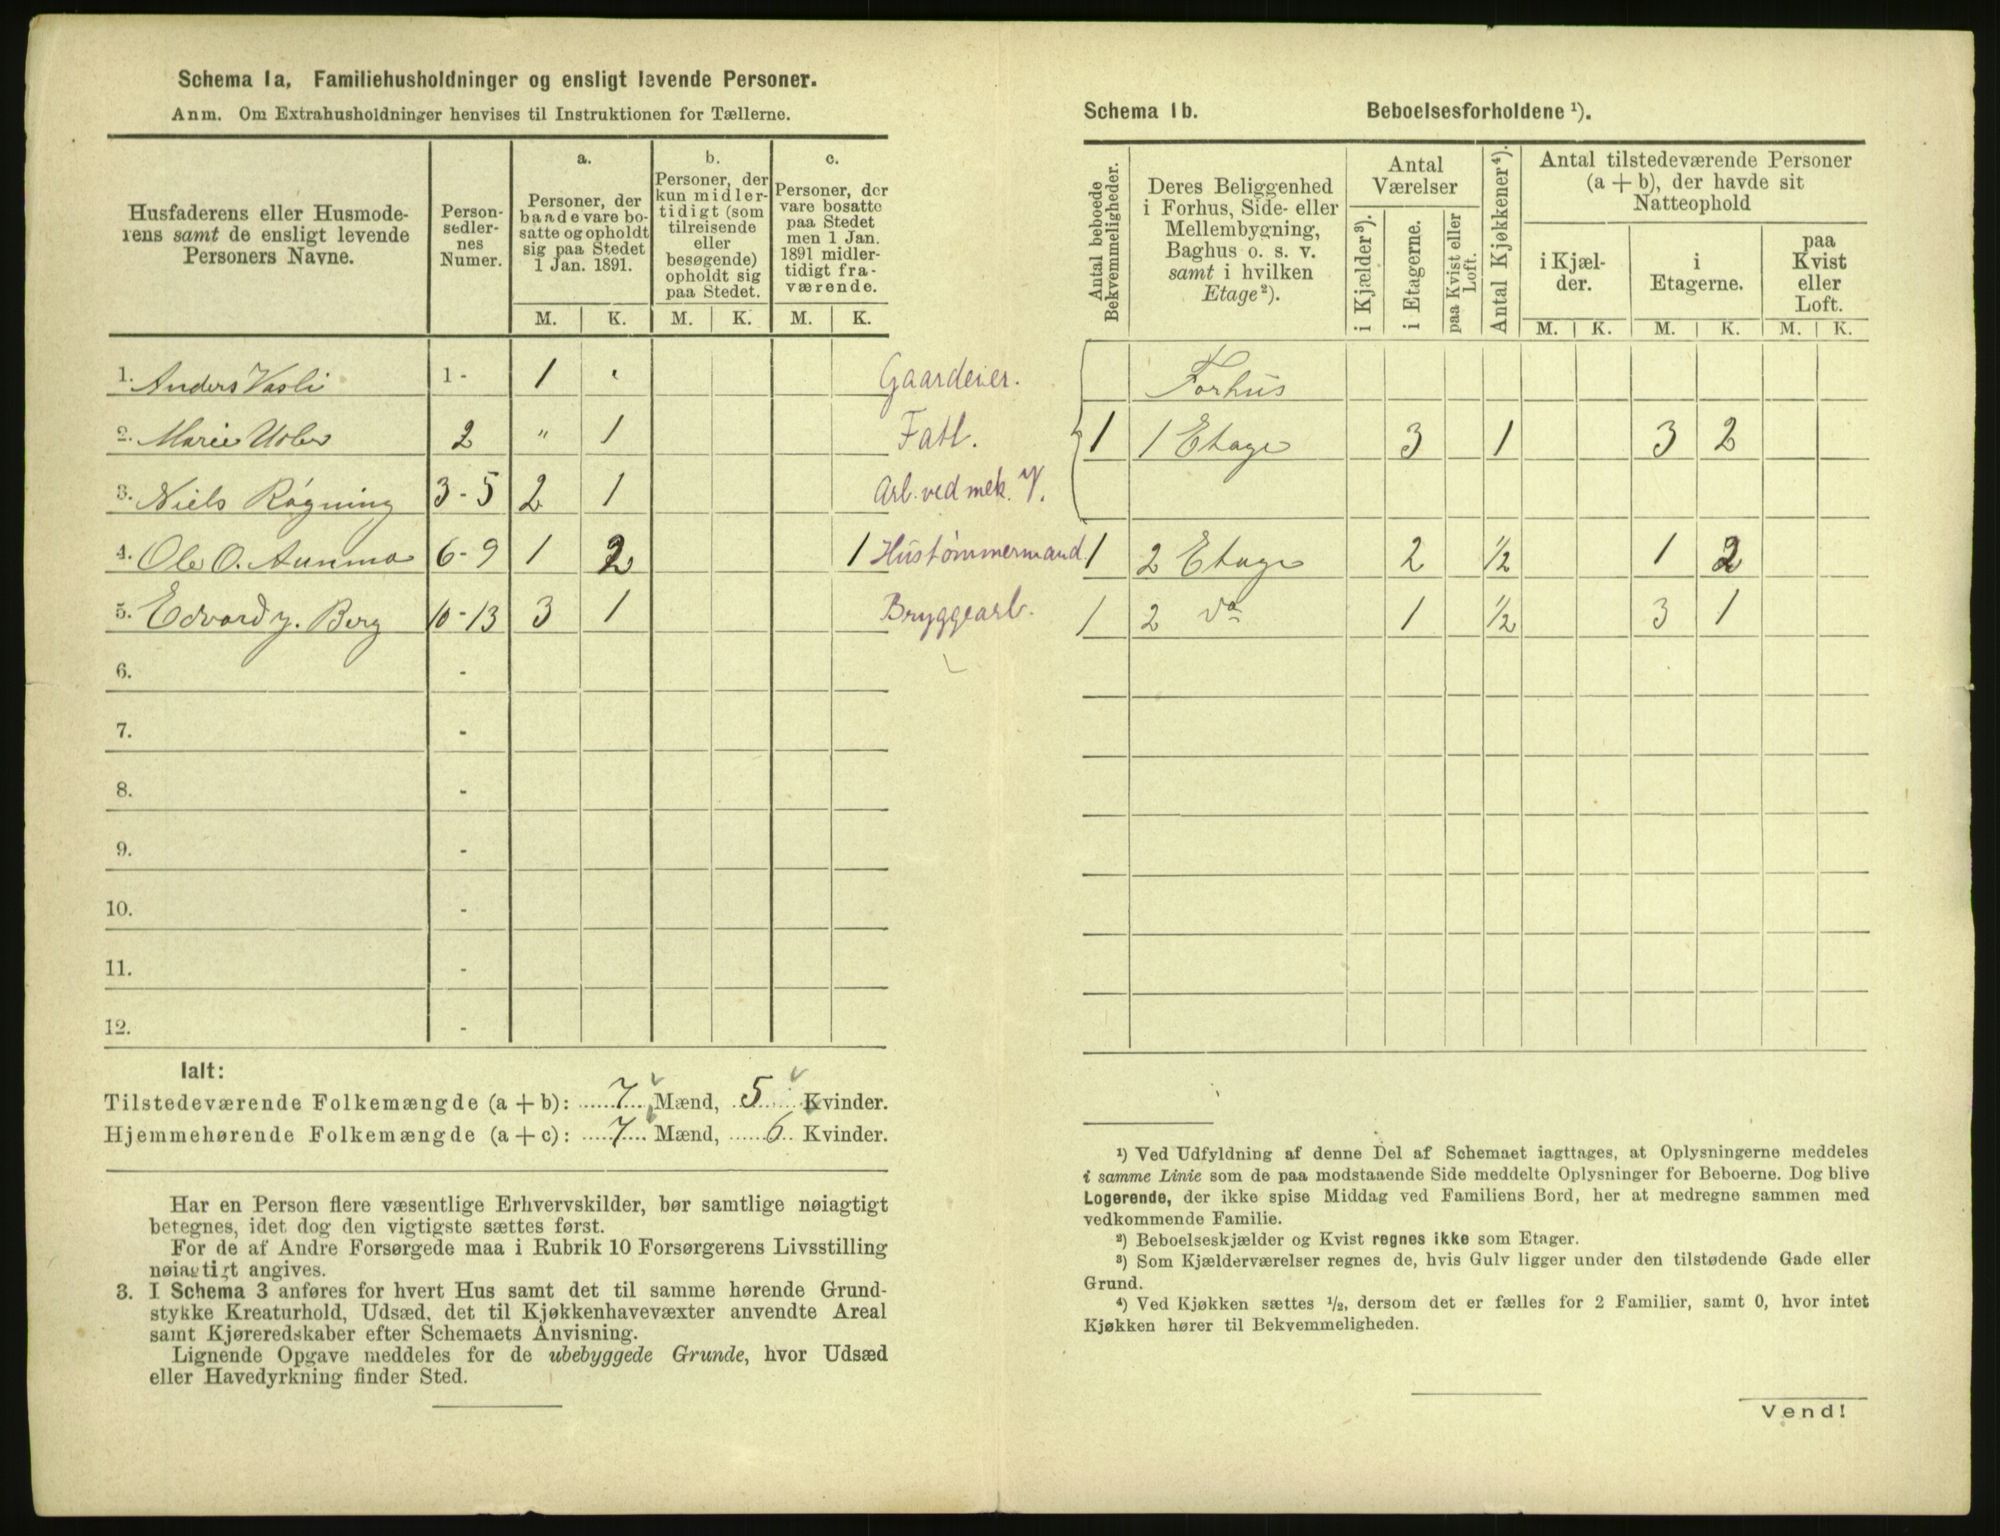 Schema 1a, Familiehusholdninger og ensligt levende Personer.
Anm. Om Extrahusholdninger henvises til Instruktionen for Tællerne.
Husfaderens eller Husmode-
rens samt de ensligt levende
Personers Navne.
Person-
sedler-
nes
Numer.
a.
Personer, der
baade vare bo-
satte og opholdt
sig paa Stedet
1 Jan. 1891.
b.
Personer, der
kun midler-
tidigt (som
tilreisende
eller
besøgende)
opholdt sig
paa Stedet.
c.
Personer, der
vare bosatte
paa Stedet
men 1 Jan.
1891 midler-
tidigt fra-
værende.
M. K. M. K. M. K.
1. Anders Vasli 1 - 1 Gaardeier.
2. Marie 2 " 1 Fatl.
3. Niels Røgning 3 - 5 2 1 Arb. ved mek. V.
4. Ole O. Aunmo 6 - 9 1 2 1 Hustømmermand
5. Edvard Berg 10 - 13 3 1 Bryggearb.
6. -
7. -
8. -
9. -
10. -
11. -
12. -
Ialt:
Tilstedeværende Folkemængde (a + b): 7 Mænd, 5 Kvinder.
Hjemmehørende Folkemængde (a + c): 7 Mænd, 6 Kvinder.
Har en Person flere væsentlige Erhvervskilder, bør samtlige nøiagtigt
betegnes, idet dog den vigtigste sættes først.
For de af Andre Forsørgede maa i Rubrik 10 Forsørgerens Livsstilling
nøiagtigt angives.
3. I Schema 3 anføres for hvert Hus samt det til samme hørende Grund-
stykke Kreaturhold, Udsæd, det til Kjøkkenhavevæxter anvendte Areal
samt Kjøreredskaber efter Schemaets Anvisning.
Lignende Opgave meddeles for de ubebyggede Grunde, hvor Udsæd
eller Havedyrkning finder Sted.
Schema 1b. Beboelsesforholdene ¹).
Antal beboede
Bekvemmeligheder.
Deres Beliggenhed
i Forhus, Side- eller
Mellembygning,
Baghus o. s. v.
samt i hvilken
Etage²).
Antal
Værelser
i Kjælder³).
i Etagerne.
paa Kvist eller
Loft.
Antal Kjøkkener⁴).
Antal tilstedeværende Personer
(a + b), der havde sit
Natteophold
i Kjæl-
der.
i
Etagerne.
paa
Kvist
eller
Loft.
M. K. M. K. M. K.
Forhus
1 1 Etage 3 1 3 2
1 2 Etage 2 1/2 1 2
1 2 do 1 1/2 3 1
¹) Ved Udfyldning af denne Del af Schemaet iagttages, at Oplysningerne meddeles
i samme Linie som de paa modstaaende Side meddelte Oplysninger for Beboerne. Dog blive
Logerende, der ikke spise Middag ved Familiens Bord, her at medregne sammen med
vedkommende Familie.
²) Beboelseskjælder og Kvist regnes ikke som Etager.
³) Som Kjælderværelser regnes de, hvis Gulv ligger under den tilstødende Gade eller
Grund.
⁴) Ved Kjøkken sættes ½, dersom det er fælles for 2 Familier, samt 0, hvor intet
Kjøkken hører til Bekvemmeligheden.
Vend!